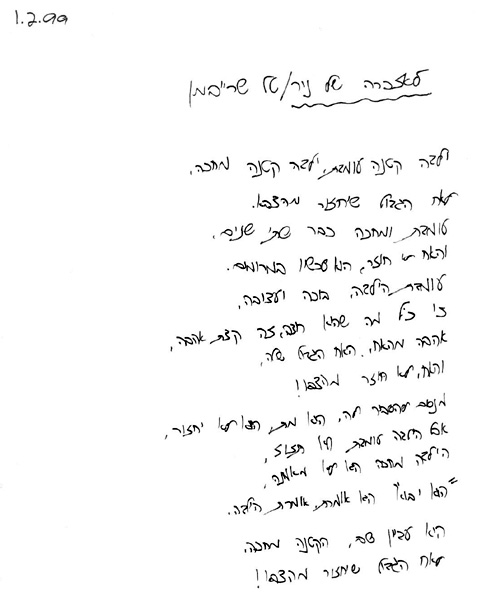 1.2.99
לאזכרה של ניר/טל שרייבמן
ילדה קטנה עומדת, ילדה קטנה מחכה,
לאח הגדול שיחזור מהצבא.
עומדת ומחכה כבר שתי שנים,
והאח לא חוזר, הוא עכשיו במרומים.
עומדת הילדה, בוכה ועצובה,
כי כל מה שהיא רוצה, זה קצת אהבה,
אהבה מהאח, האח הגדול שלה,
והאח, לא חוזר מהצבא!
מנסים להסביר לה, הוא מת, הוא לא יחזור,
אבל הילדה עומדת
הילדה מחכה היא לא מאמינה,
"הוא יבוא" היא אומרת, אומרת הילדה.
היא עדיין שם, הקטנה מחכה,
לאח הגדול שיחזור מהצבא!